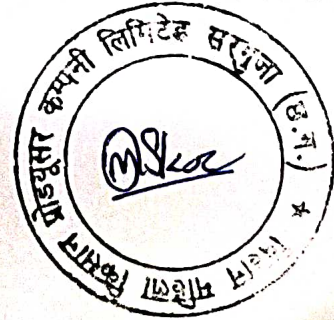 महिला किसान प्रोड्यूसर कम्पनी लिमिटेड सरगुजा (छ.ग.) ★